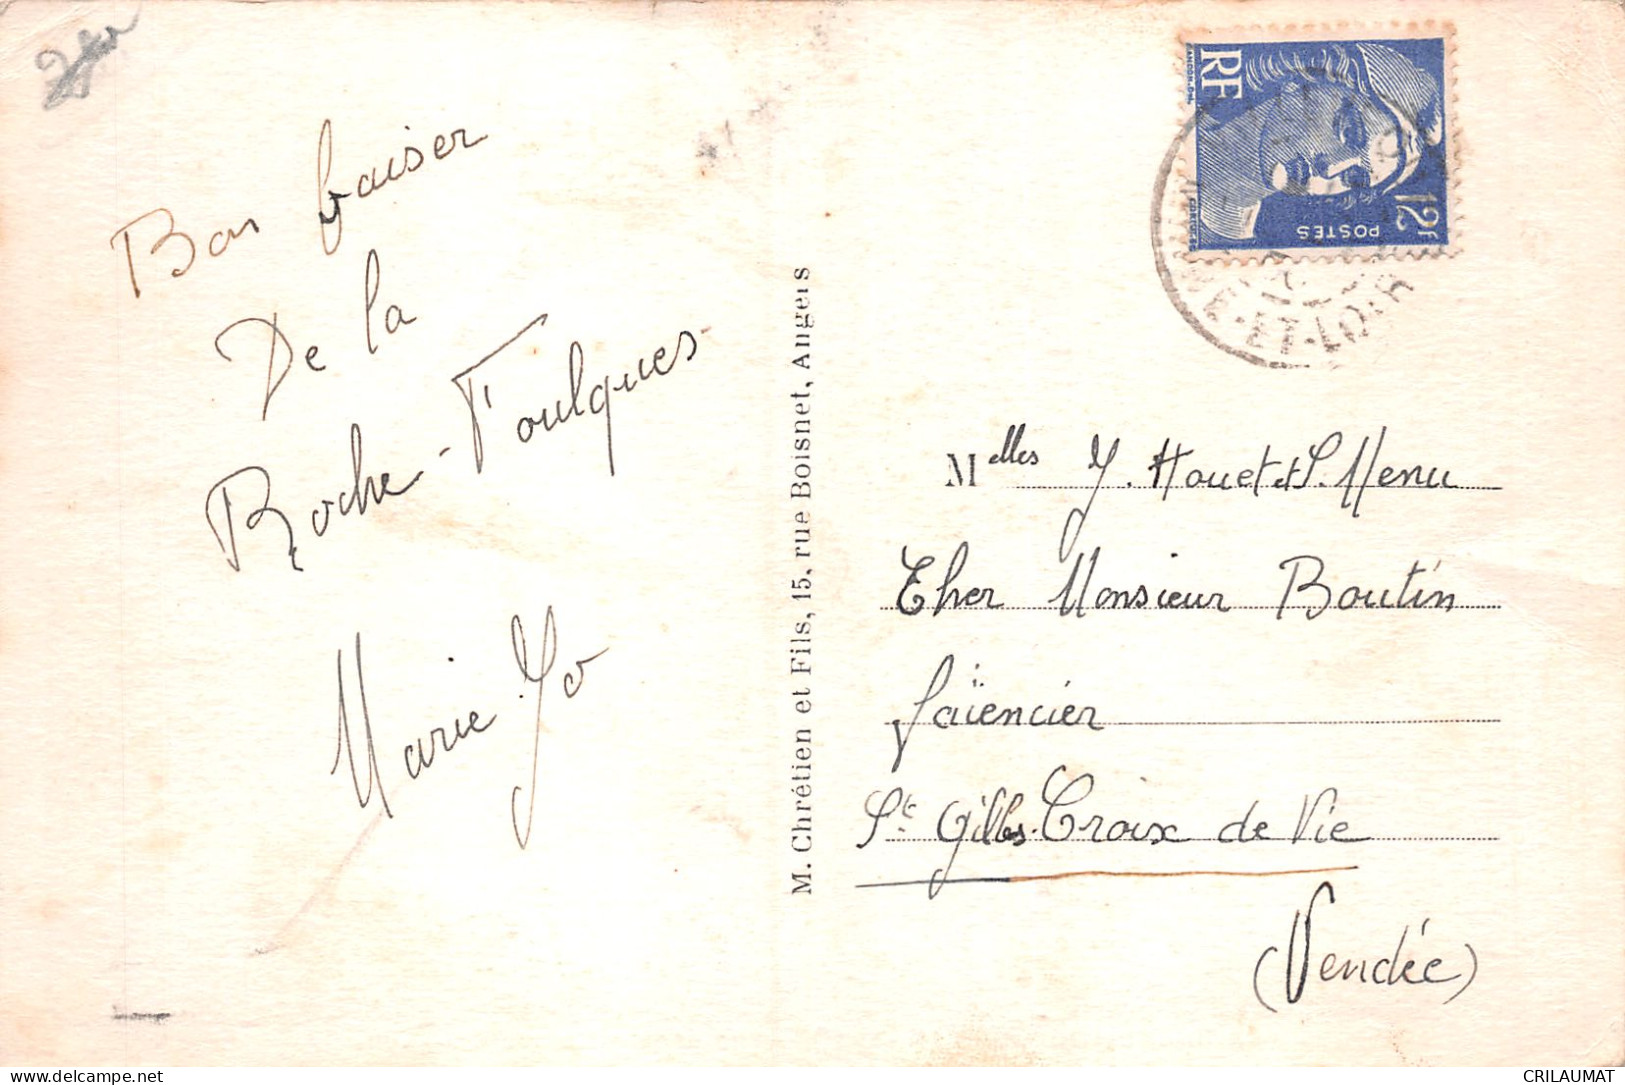 Bon baiser
De la
Roche-Foulques
Marie Jo
M. Chrétien et Fils, 15, rue Boisnet, Angers
RF
POSTES
12F
ET-LOIR
Melles J. Houet et S. Menu
Cher Monsieur Boutin
faïencier
St Gilles. Croix de Vie
(Vendée)
delcampe.net
CRILAUMAT